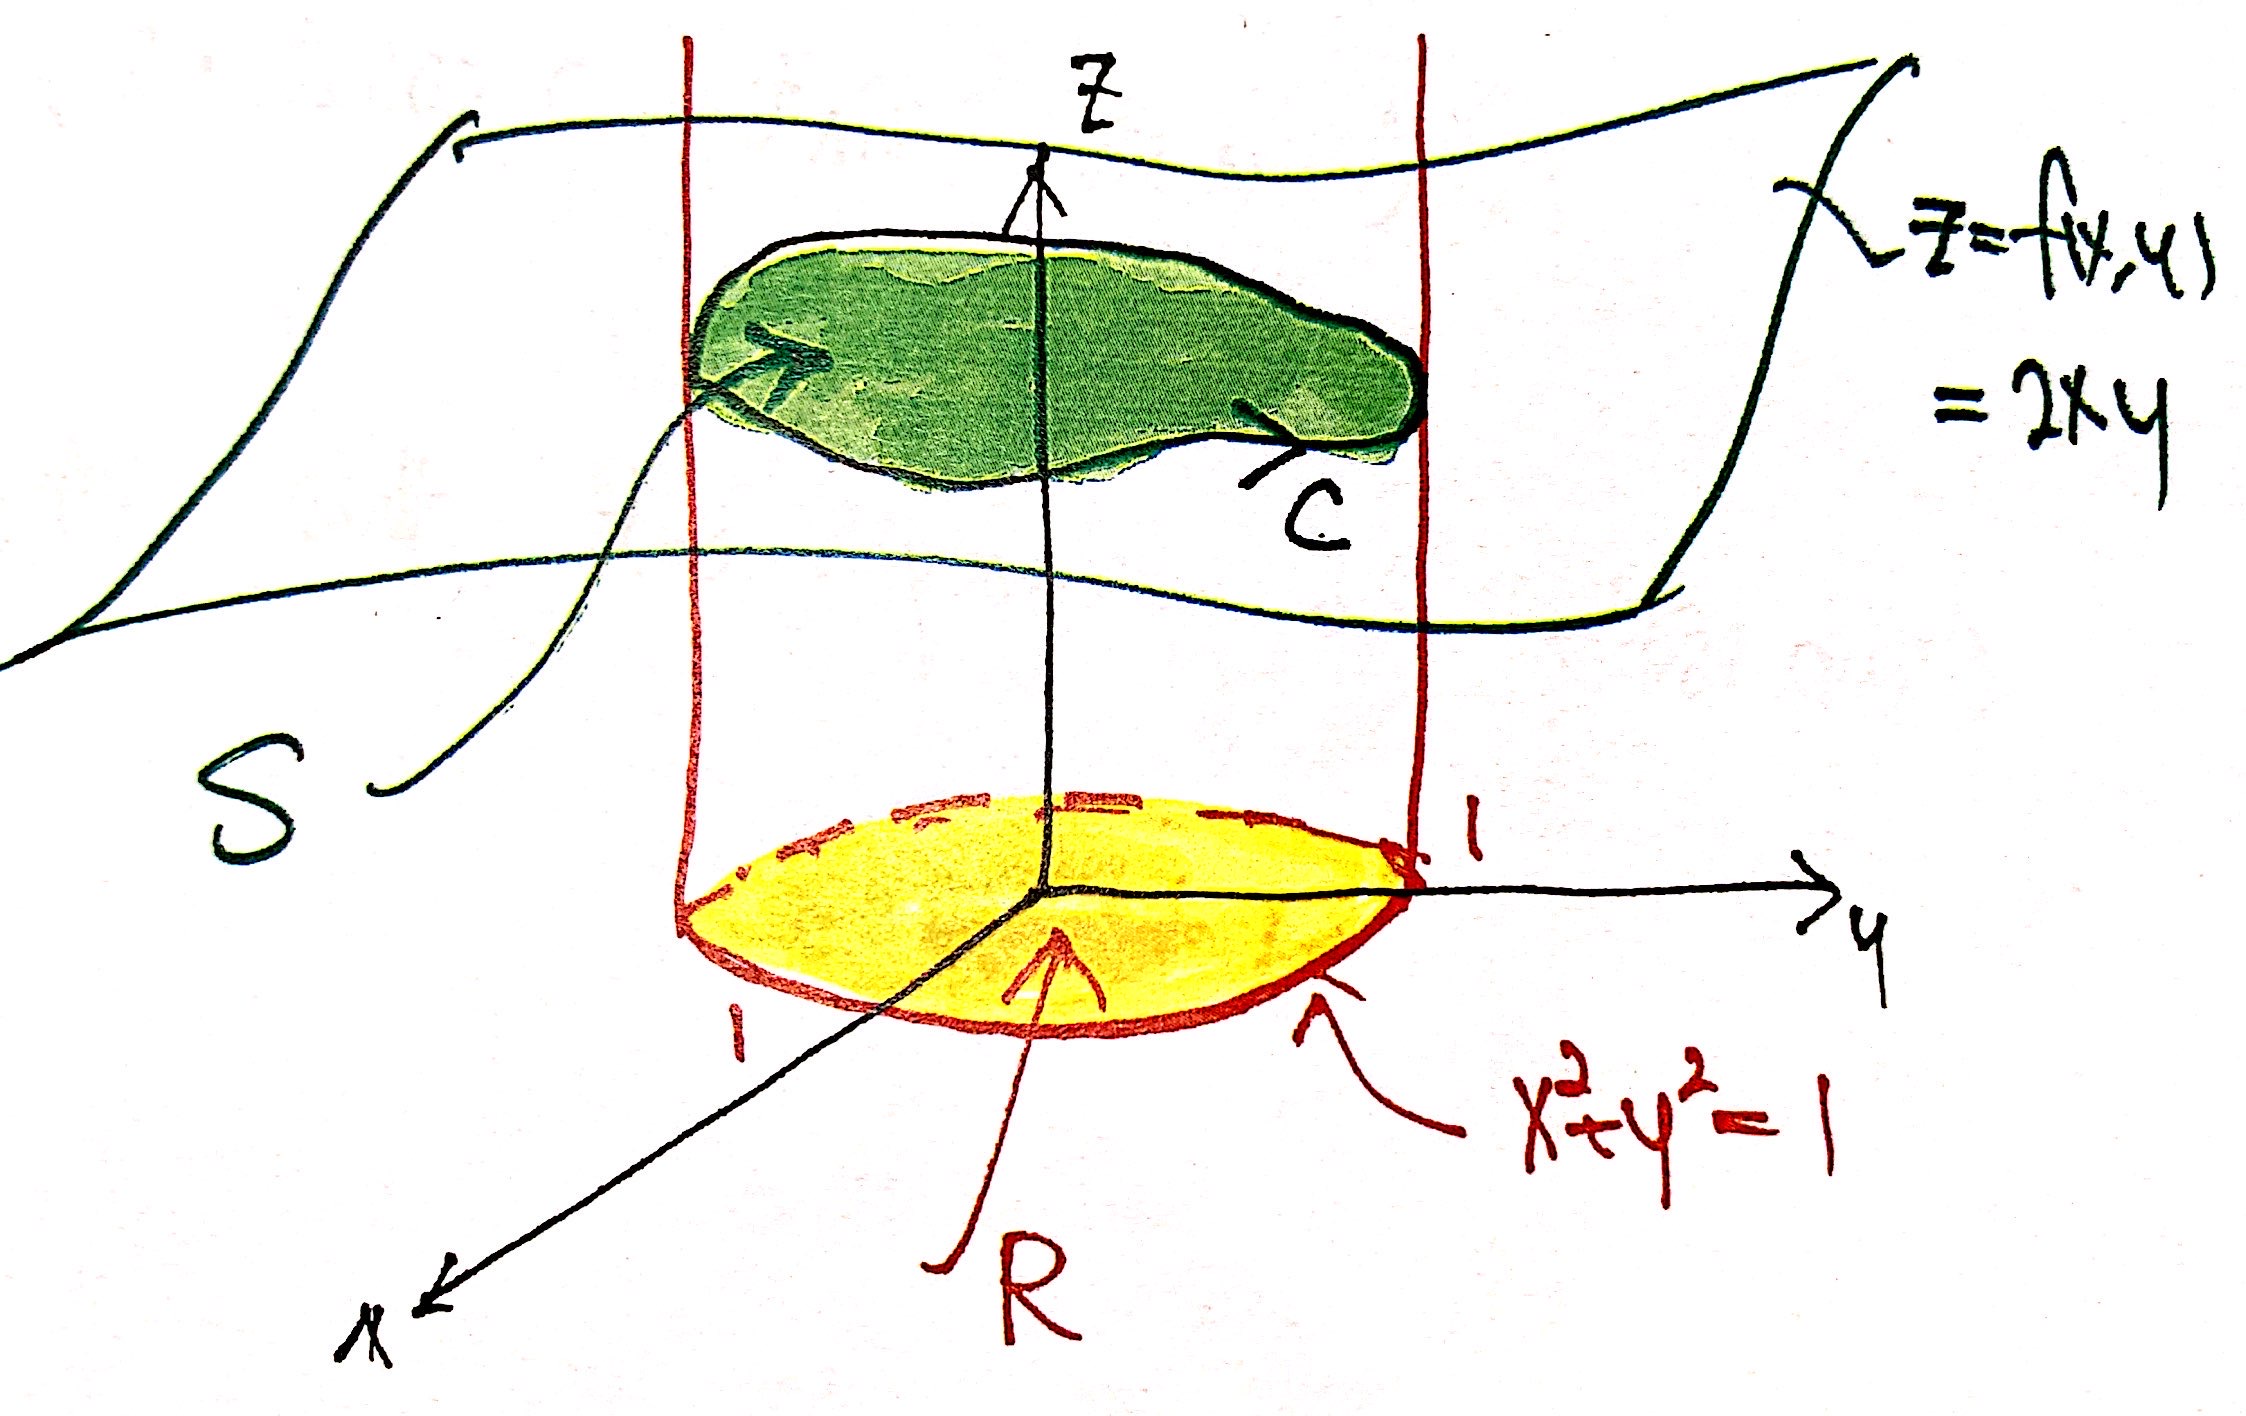 z
z=f(x,y)
=2xy
C
S
1
y
1
x²+y²=1
R
x